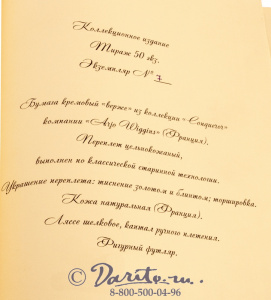 Коллекционное издание
Тираж 50 экз.
Экземпляр № 7
Бумага кремовый «верже» из коллекции «Conqueror»
компании «Arjo Wiggins» (Франция).
Переплет цельнокожаный,
выполнен по классической старинной технологии.
Украшение переплета: тиснение золотом и блинтом; торшировка.
Кожа натуральная (Франция).
Ляссе шелковое, каптал ручного плетения.
Фигурный футляр.
© Darito.ru
8-800-500-04-96